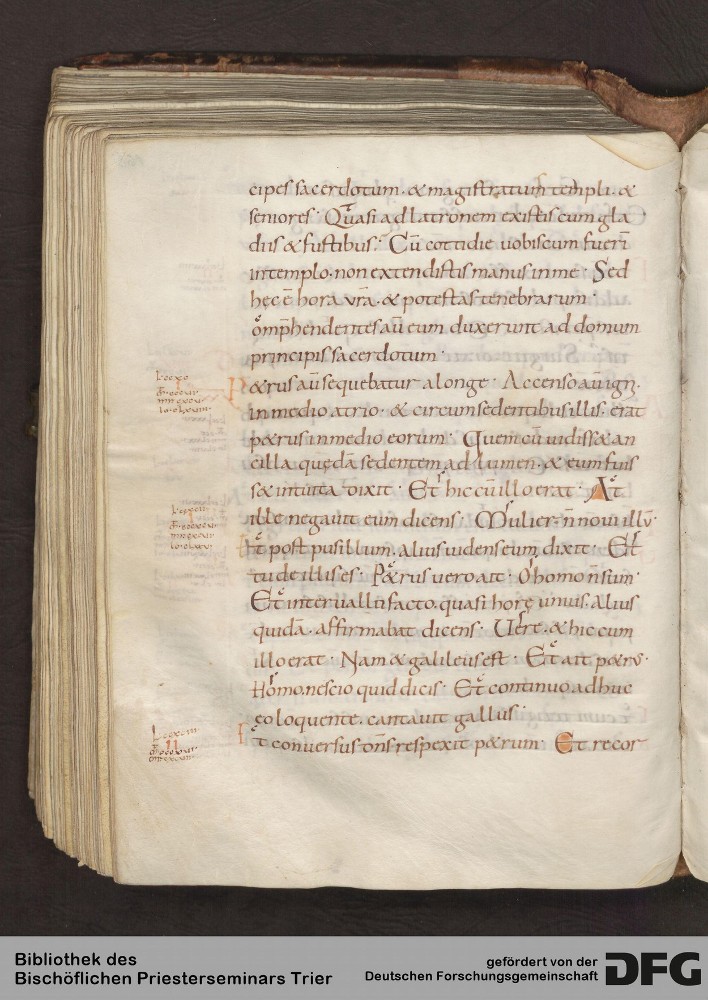 cipes sacerdotum · & magistratum templi · &
seniores · Quasi ad latronem existis cum gla
diis & fustibus · Cū cottidie uobiscum fueri
in templo · non extendistis manus in me · Sed
hęc ē hora vr̄a · & potestas tenebrarum ·
omp̄hendentes aū eum duxerunt ad domum
principis sacerdotum ·
P&rus aū sequebatur a longe · Accenso aū ign̄ ·
in medio atrio · & circumsedentibus illis · erat
p&rus in medio eorum · Quem cū uidiss& an
cilla quędā sedentem ad lumen · & eum fuis
s& intuita dixit · Et hic cū illo erat · At
ille negauit eum dicens · Mulier · n̄ noui illū ·
Et post pusillum · alius uidens eum dixit · Et
tu de illis es · P&rus uero ait · O homo n̄ sum ·
Et interuallū facto · quasi horę unius · Alius
quidā · affirmabat dicens · Uere · & hic cum
illo erat · Nam & galileus est · Et ait p&rus ·
Homo · nescio quid dicis · Et continuo adhuc
eo loquente · cantauit gallus ·
Et conuersus dn̄s respexit p&rum · Et recor
Bibliothek des
Bischöflichen Priesterseminars Trier
gefördert von der
Deutschen Forschungsgemeinschaft
DFG